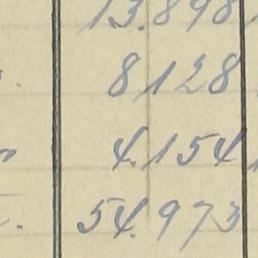 13.898
8128
4.154
54.973